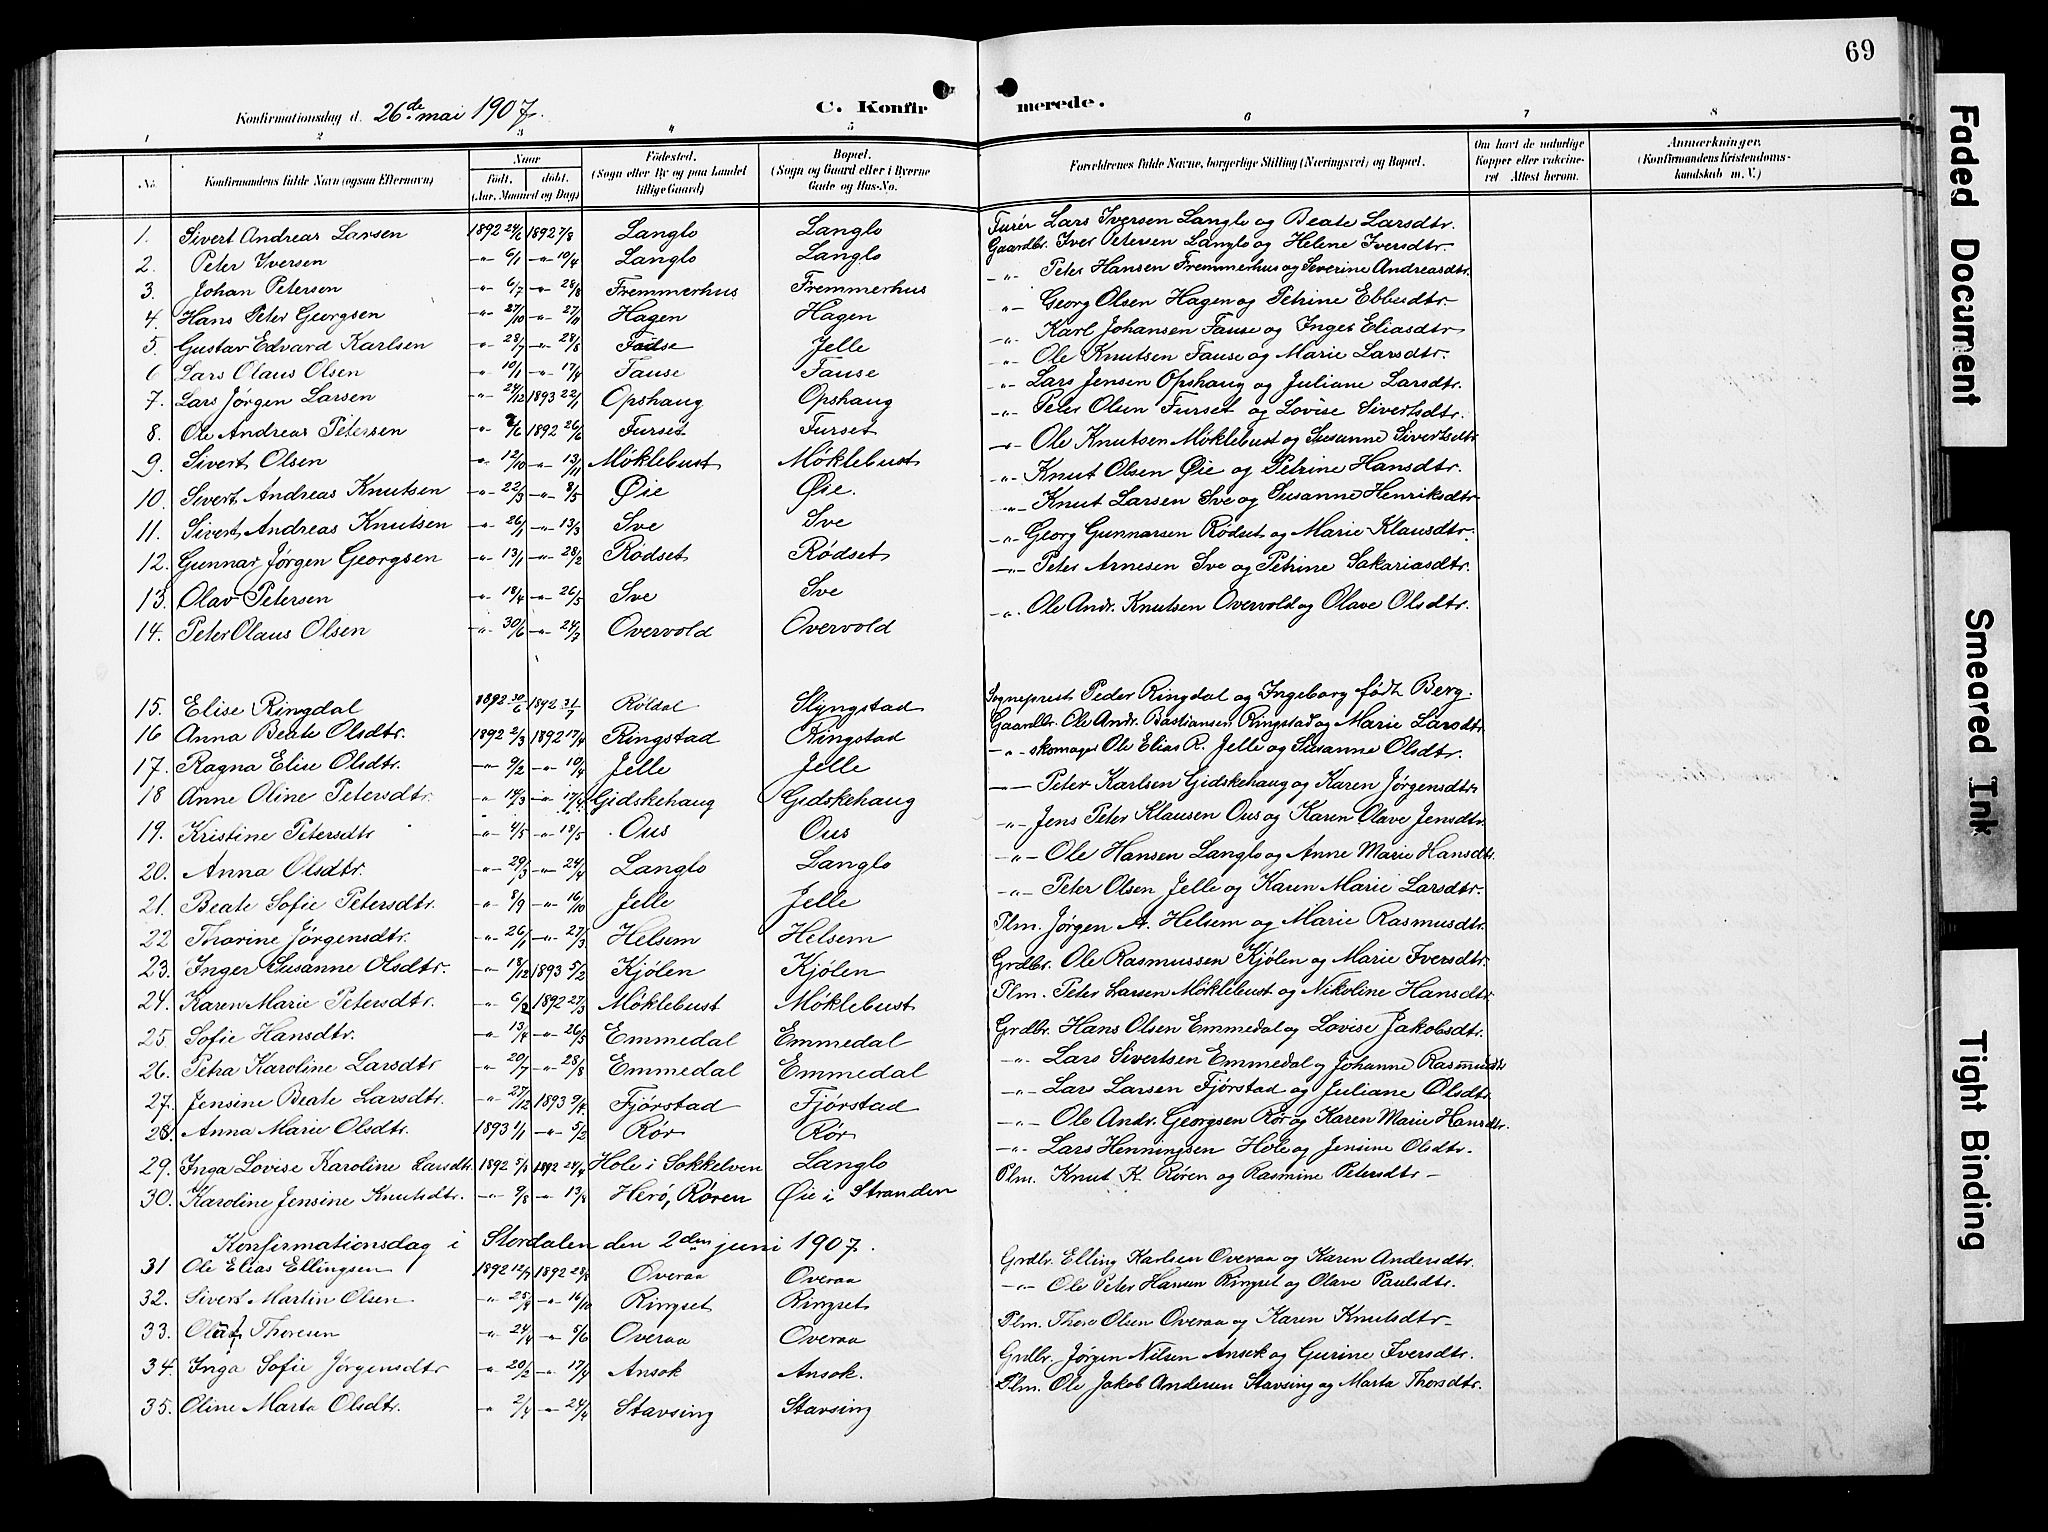 69
Konfirmationsdag d. 26de mai 1907.
C. Konfirmerede.
1 2 3 4 5 6 7 8
No. Konfirmandens fulde Navn (ogsaa Efternavn) Naar født. døbt. (Aar, Maaned og Dag) Fødested. (Sogn eller By og paa Landet tillige Gaard) Bopæl. (Sogn og Gaard eller i Byerne Gade og Hus-No. Forældrenes fulde Navne, borgerlige Stilling (Næringsvei) og Bopæl. Om havt de naturlige Kopper eller vakcineret Attest herom. Anmærkninger. (Konfirmandens Kristendomskundskab m. V.)
1. Sivert Andreas Larsen 1892 24/6 1892 7/8 Langlo Langlo Furér Lars Iversen Langlo og Beate Larsdtr.
2. Peter Iversen -"- 6/1 -"- 10/4 Langlo Langlo Gaardbr. Iver Petersen Langlo og Helene Iversdtr.
3. Johan Petersen -"- 6/7 -"- 28/8 Fremmerhus Fremmerhus -"- Peter Hansen Fremmerhus og Severine Andreasdtr.
4. Hans Peter Georgsen -"- 27/10 -"- 27/11 Hagen Hagen -"- Georg Olsen Hagen og Petrine Ebbesdtr
5. Gustav Edvard Karlsen -"- 28/7 -"- 28/8 Fause Jelle -"- Karl Johansen Fause og Inger Eliasdtr
6 Lars Olaus Olsen -"- 10/1 -"- 17/4 Fause Fause -"- Ole Knutsen Fause og Marie Larsdtr.
7. Lars Jørgen Larsen -"- 24/12 1893 22/1 Opshaug Opshaug -"- Lars Jensen Opshaug og Juliane Larsdtr.
8. Ole Andreas Petersen -"- /6 1892 26/6 Furset Furset -"- Peter Olsen Furset og Lovise Sivertsdtr.
9. Sivert Olsen -"- 12/10 -"- 13/11 Møklebust Møklebust -"- Ole Knutsen Møklebust og Susanne Sivertsdtr
10. Sivert Andreas Knutsen -"- 22/3 -"- 8/5 Øie Øie. -"- Knut Olsen Øie og Petrine Hansdtr.
11. Sivert Andreas Knutsen -"- 26/1 -"- 13/3 Sve Sve -"- Knut Larsen Sve og Susanne Henriksdtr
12. Gunnar Jørgen Georgsen -"- 13/1 -"- 28/2 Rødset Rødset -"- Georg Gunnarsen Rødset og Marie Klausdtr.
13. Olav Petersen -"- 18/4 -"- 26/5 Sve Sve -"- Peter Arnesen Sve og Petrine Sakariasdtr.
14. Peter Olaus Olsen -"- 30/6 -"- 24/7 Overvold Overvold -"- Ole Andr. Knutsen Overvold og Olave Olsdtr.
15. Elise Ringdal 1892 30/6 1892 31/7 Røldal Slyngstad Sogneprest Peder Ringdal og Ingeborg født Berg.
16 Anna Beate Olsdtr. 1892 2/3 1892 17/4 Ringstad Ringstad Gaardbr. Ole Andr. Bastiansen Ringstad og Marie Larsdtr
17. Ragna Elise Olsdtr. -"- 9/2 -"- 10/4 Jelle Jelle -"- skomager Ole Elias R. Jelle og Susanne Olsdtr.
18 Anne Oline Petersdtr. -"- 14/3 -"- 17/4 Gidskehaug Gidskehaug -"- Peter Karlsen Gidskehaug og Karen Jørgensdtr
19. Kristine Petersdtr -"- 4/5 -"- 18/5 Ous Ous -"- Jens Peter Klausen Ous og Karen Olave Jensdtr.
20. Anna Olsdtr. -"- 29/3 -"- 24/4 Langlo Langlo -"- Ole Hansen Langlo og Anne Marie Hansdtr.
21. Beate Sofie Petersdtr. -"- 8/9 -"- 16/10 Jelle Jelle -"- Peter Olsen Jelle og Karen Marie Larsdtr.
22 Thorine Jørgensdtr. -"- 26/1 -"- 27/3 Helsem Helsem Plm. Jørgen A. Helsem og Marie Rasmusdtr.
23. Inger Susanne Olsdtr. -"- 18/12 1893 5/2 Kjølen Kjølen Grdbr. Ole Rasmussen Kjølen og Marie Iversdtr.
24. Karen Marie Petersdtr. -"- 6/2 1892 27/3 Møklebust Møklebust Plm. Peter Larsen Møklebust og Nikoline Hansdtr
25. Sofie Hansdtr. -"- 13/4 -"- 26/5 Emmedal Emmedal Grdbr. Hans Olsen Emmedal og Lovise Jakobsdtr.
26. Petra Karoline Larsdtr -"- 20/7 -"- 28/8 Emmedal Emmedal -"- Lars Sivertsen Emmedal og Johanne Rasmusdtr
27. Jensine Beate Larsdtr. -"- 27/12 1893 9/4 Fjørstad Fjørstad -"- Lars Larsen Fjørstad og Juliane Olsdtr.
28. Anna Marie Olsdtr. 1893 1/1 -"- 5/2 Rør Rør -"- Ole Andr. Georgsen Rør og Karen Marie Hansdtr.
29. Inga Lovise Karoline Larsdtr. 1892 5/3 1892 24/4 Hole i Søkkelven Langlo -"- Lars Henningsen Hole og Jensine Olsdtr.
30. Karoline Jensine Knutsdtr. -"- 9/8 -"- 13/8 Herø, Røren Øie i Stranden Plm. Knut K. Røren og Rasmine Petersdtr -
Konfirmationsdag i Stordalen den 2den juni 1907.
31 Ole Elias Ellingsen 1892 12/7 1892 28/8 Overaa Overaa Grdbr. Elling Karlsen Overaa og Karen Andersdtr.
32. Sivert Martin Olsen -"- 25/9 -"- 16/10 Ringset Ringset -"- Ole Peter Hansen Ringset og Olave Paulsdtr.
33. Olaf Thoresen -"- 24/4 -"- 5/6 Overaa Overaa Plm. Thore Olsen Overaa og Karen Knutsdtr
34. Inga Sofie Jørgensdtr -"- 20/2 -"- 17/4 Ansok Ansok. Grdbr. Jørgen Nilsen Ansok og Gurine Iversdtr.
35. Oline Marta Olsdtr. -"- 2/4 -"- 24/4 Stavsing Stavsing Plm. Ole Jakob Andersen Stavsing og Marta Thorsdtr.
Faded Document
Smeared Ink
Tight Binding